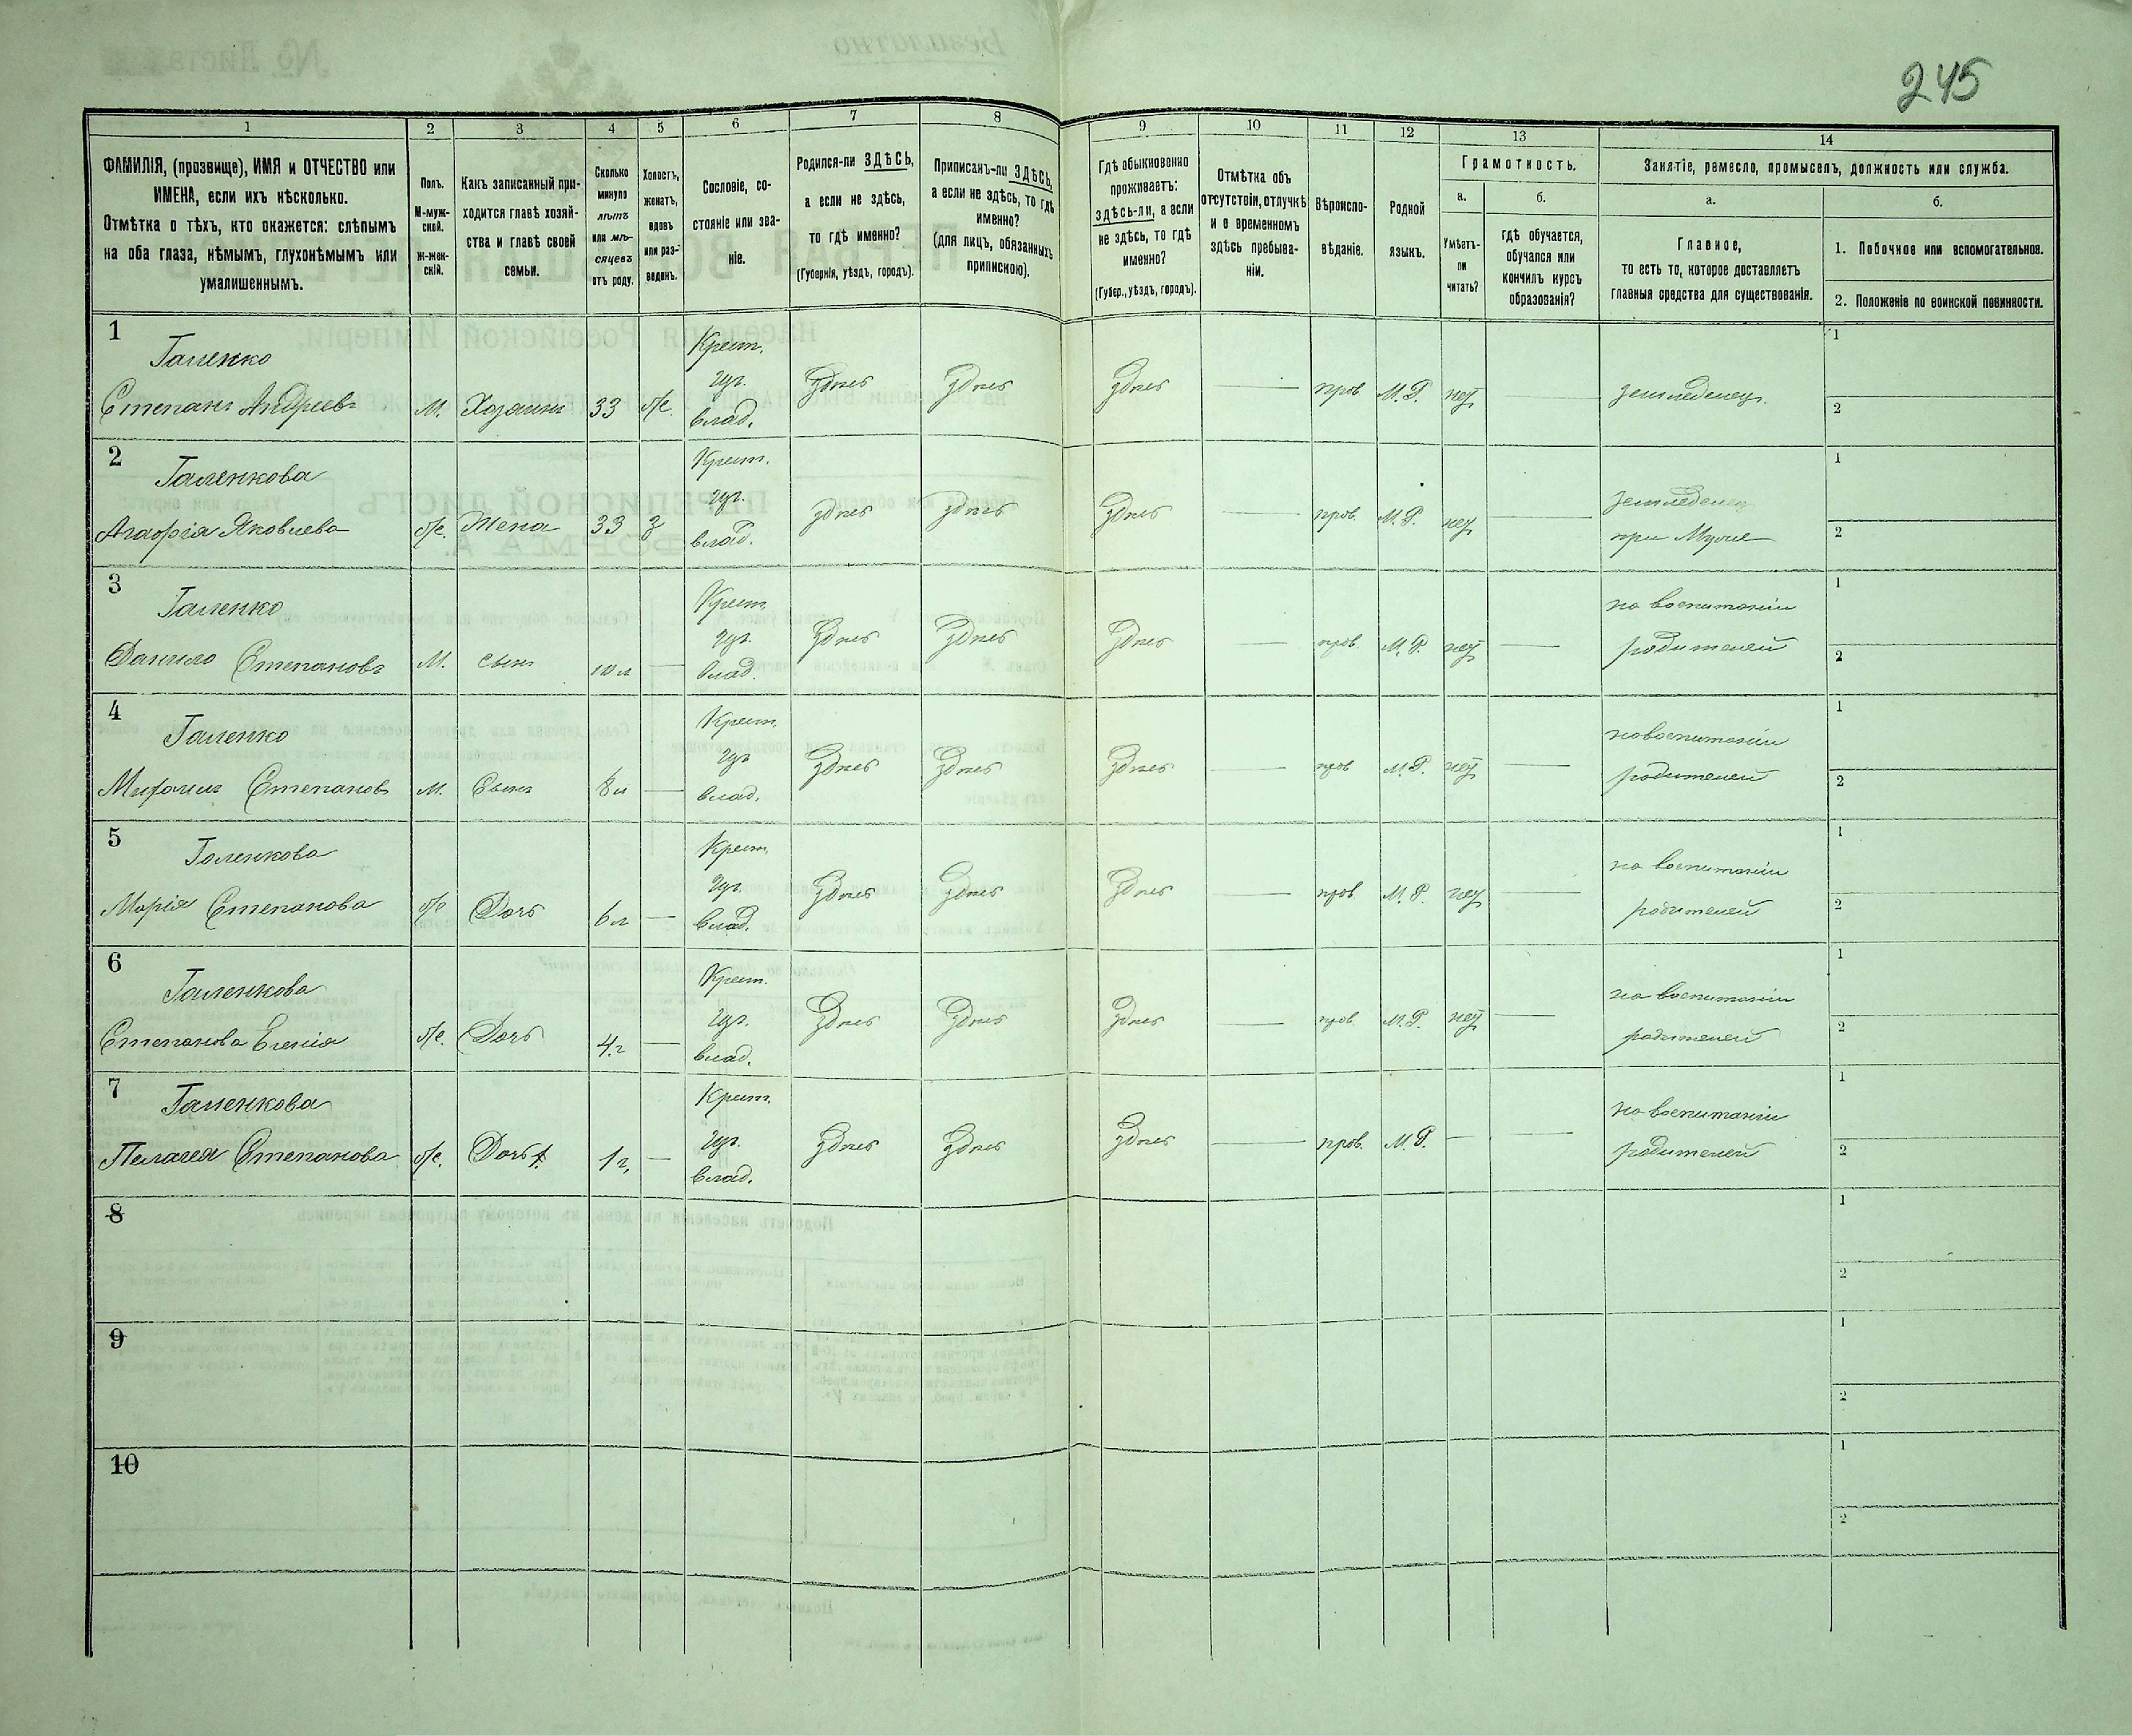 245
1 2 3 4 5 6 7 8 9 10 11 12 13 14
ФАМИЛІЯ, (прозвище), ИМЯ и ОТЧЕСТВО или
ИМЕНА, если ихъ нѣсколько.
Отмѣтка о тѣхъ, кто окажется: слѣпымъ
на оба глаза, нѣмымъ, глухонѣмымъ или
умалишеннымъ.
Полъ.
М-муж-
ской.
Ж-жен-
скій.
Какъ записанный при-
ходится главѣ хозяй-
ства и главѣ своей
семьи.
Сколько
минуло
лѣтъ
или мѣ-
сяцевъ
отъ роду.
Холостъ,
женатъ,
вдовъ
или раз-
веденъ.
Сословіе, со-
стояніе или зва-
ніе.
Родился-ли ЗДѢСЬ,
а если не здѣсь,
то гдѣ именно?
(Губернія, уѣздъ, городъ).
Приписанъ-ли ЗДѢСЬ,
а если не здѣсь, то гдѣ
именно?
(для лицъ, обязанныхъ
припискою).
Гдѣ обыкновенно
проживаетъ:
здѣсь-ли, а если
не здѣсь, то гдѣ
именно?
(Губер., уѣздъ, городъ).
Отмѣтка объ
отсутствіи, отлучкѣ
и о временномъ
здѣсь пребыва-
ніи.
Вѣроиспо-
вѣданіе.
Родной
языкъ.
Грамотность.
а.
Умѣетъ-
ли
читать?
б.
гдѣ обучается,
обучался или
кончилъ курсъ
образованія?
Занятіе, ремесло, промыселъ, должность или служба.
а.
Главное,
то есть то, которое доставляетъ
главныя средства для существованія.
б.
1. Побочное или вспомогательное.
2. Положеніе по воинской повинности.
1
Галенко
Степанъ Андреевъ М. Хозяинъ 33 ж. Крест. влад. здѣсь здѣсь здѣсь — прав М.Р. нет земледелец.
1
2
2
Галенкова
Агафія Яковлева ж. Жена 33 з Крест. влад. здѣсь здѣсь здѣсь — прав. М.Р. нет — земледелец
при Муже
1
2
3
Галенко
Данило Степановъ М. сынъ 10 л — Крест. влад. здѣсь здѣсь здѣсь — прав. М.Р. нет — на воспитаніи
родителей
1
2
4
Галенко
Степановъ М. Сынъ 8 л — Крест. влад. здѣсь здѣсь здѣсь — прав М.Р. нет — на воспитаніи
родителей
1
2
5
Галенкова
Марія Степанова ж Дочь 6 л — Крест. влад. здѣсь здѣсь здѣсь — прав. М.Р. нет — на воспитаніи
родителей
1
2
6
Галенкова
Степанова ж. Дочь 4 г — Крест. влад. здѣсь здѣсь здѣсь — прав М.Р. нет — на воспитаніи
родителей
1
2
7
Галенкова
Пелагея Степанова ж. Дочь 1 г. — Крест. влад. здѣсь здѣсь здѣсь — прав. М.Р. — — на воспитаніи
родителей
1
2
8
1
2
9
1
2
10
1
2